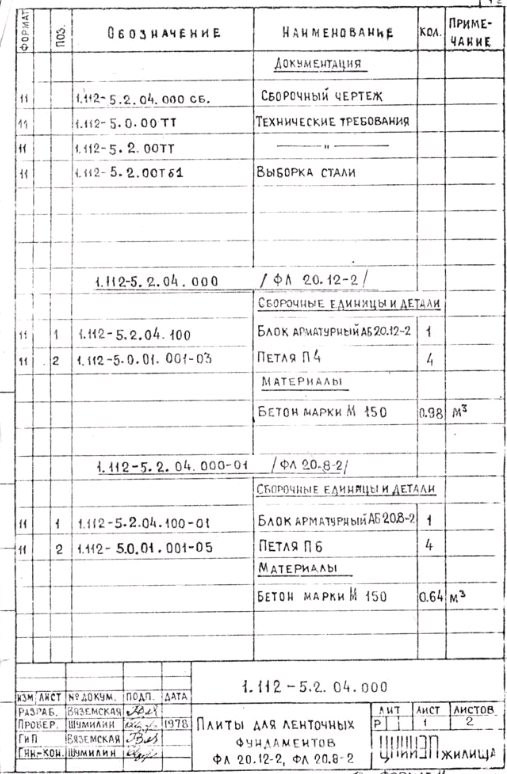 ФОРМАТ ПОЗ. ОБОЗНАЧЕНИЕ НАИМЕНОВАНИЕ КОЛ. ПРИМЕ-
ЧАНИЕ
ДОКУМЕНТАЦИЯ
11 1.112-5.2.04.000 СБ. СБОРОЧНЫЙ ЧЕРТЕЖ
11 1.112-5.0.00ТТ ТЕХНИЧЕСКИЕ ТРЕБОВАНИЯ
11 1.112-5.2.00ТТ — " —
11 1.112-5.2.00Тб1 ВЫБОРКА СТАЛИ
1.112-5.2.04.000 /ФЛ 20.12-2/
СБОРОЧНЫЕ ЕДИНИЦЫ И ДЕТАЛИ
11 1 1.112-5.2.04.100 БЛОК АРМАТУРНЫЙ АБ20.12-2 1
11 2 1.112-5.0.01.001-03 ПЕТЛЯ П4 4
МАТЕРИАЛЫ
БЕТОН МАРКИ М 150 0.98 м3
1.112-5.2.04.000-01 /ФЛ 20.8-2/
СБОРОЧНЫЕ ЕДИНИЦЫ И ДЕТАЛИ
11 1 1.112-5.2.04.100-01 БЛОК АРМАТУРНЫЙ АБ20.8-2 1
11 2 1.112-5.0.01.001-05 ПЕТЛЯ П6 4
МАТЕРИАЛЫ
БЕТОН МАРКИ М 150 0.64 м3
1.112-5.2.04.000
ИЗМ. ЛИСТ № ДОКУМ. ПОДП. ДАТА
РАЗРАБ. ВЯЗЕМСКАЯ
ПРОВЕР. ШУМИЛИН 1978
ГИП ВЯЗЕМСКАЯ
ГИН-КОН. ШУМИЛИН
ПЛИТЫ ДЛЯ ЛЕНТОЧНЫХ
ФУНДАМЕНТОВ
ФЛ 20.12-2, ФЛ 20.8-2
ЛИТ ЛИСТ ЛИСТОВ
Р 1 2
ЦНИИЭП ЖИЛИЩА